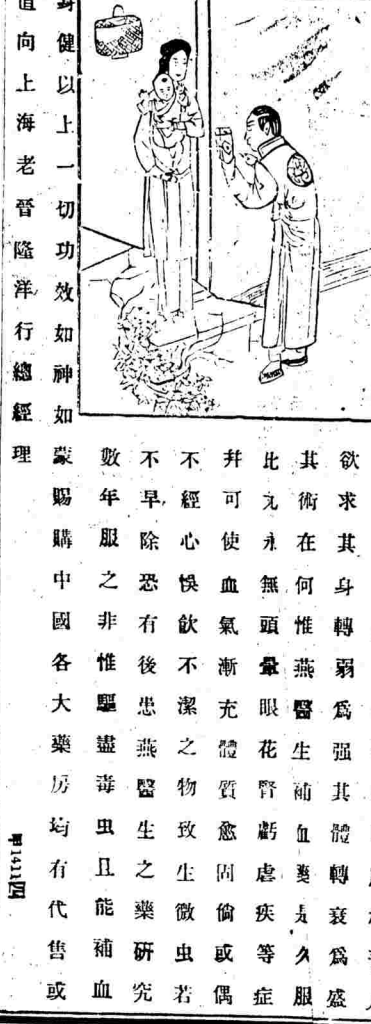 欲求其身轉弱爲强其體轉衰爲盛
其術在何惟燕醫生補血藥是久服
此丸永無頭暈眼花腎虧虐疾等症
幷可使血氣漸充體質愈固倘或偶
不經心悞飲不潔之物致生微虫若
不早除恐有後患燕醫生之藥研究
數年服之非惟驅盡毒虫且能補血
身健以上一切功效如神如蒙賜購中國各大藥房均有代售或
直向上海老晉隆洋行總經理